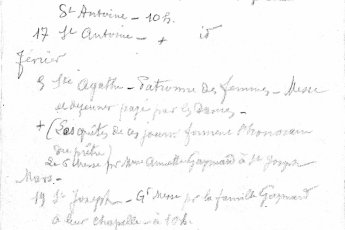 St Antoine - 10h.
17 St Antoine - + id
février
5 Ste Agathe - Patronne des femmes - Messe
et déjeuner payé par les Dames -
+ (Les quêtes de ces jours forment l'honoraire
du prêtre)
Le 6 messe pr Mme Gaymard à St Joseph
Mars. -
19 St Joseph - Gd Messe pr la famille Gaymard
à leur chapelle - à 10h.